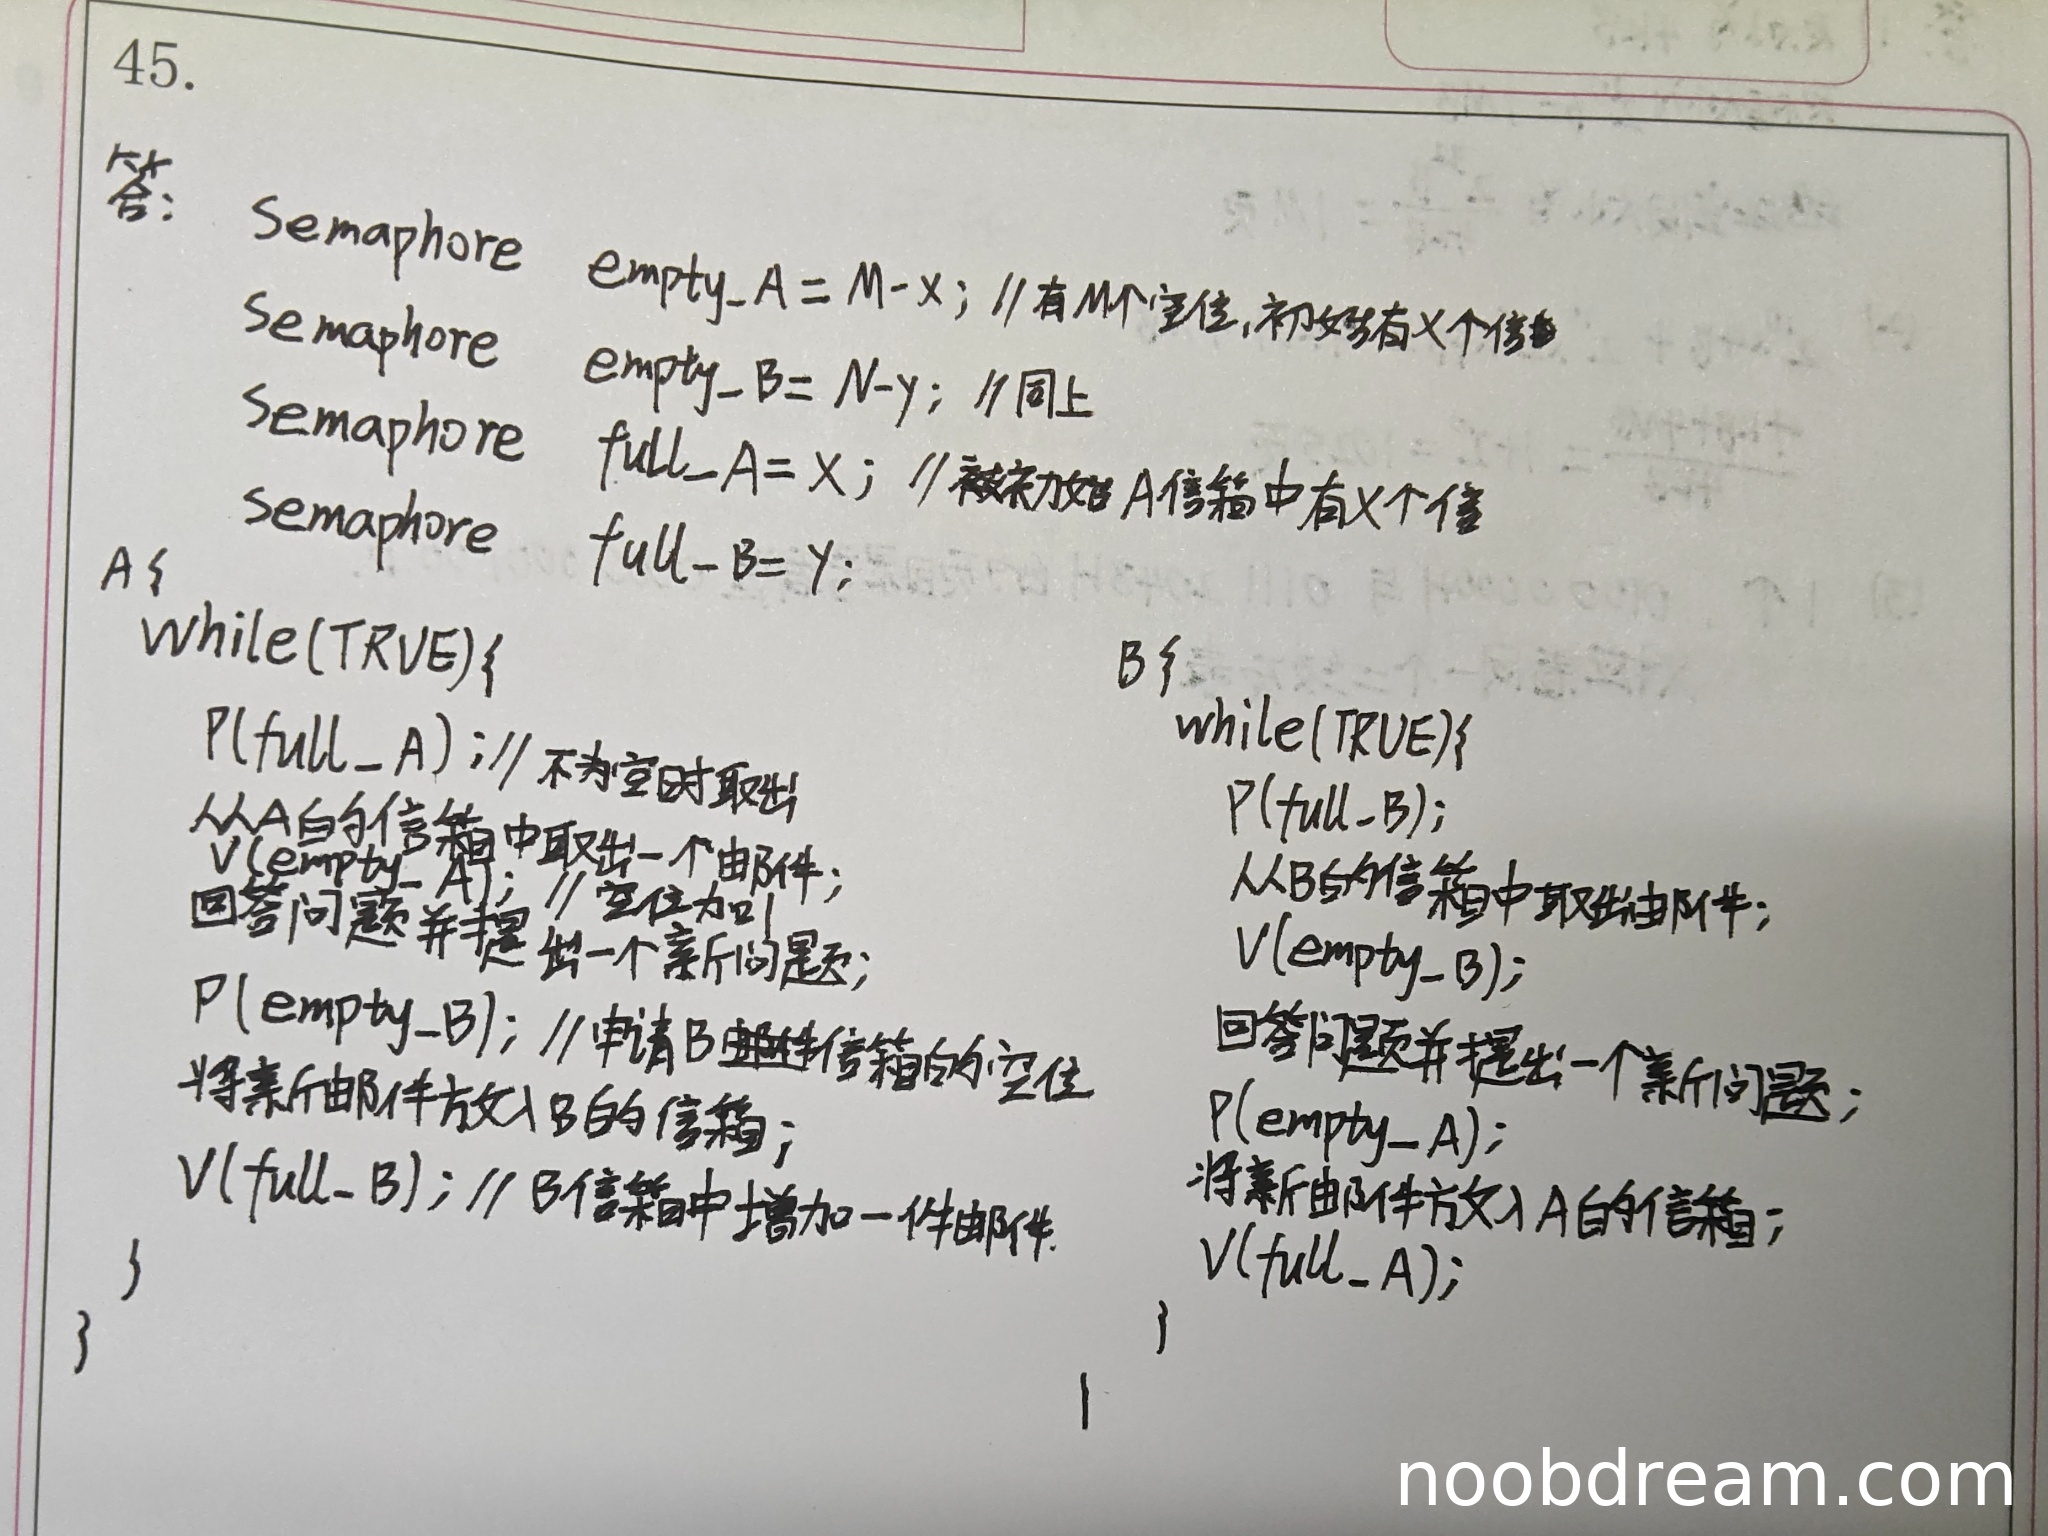 45.
答:
Semaphore empty_A = M-x; //有M个空位,初始有x个信
Semaphore empty_B = N-y; //同上
Semaphore full_A = x; //初始A信箱中有x个信
Semaphore full_B = y;
A{
while(TRUE){
P(full_A); //不为空时取出
从A的信箱中取出一个邮件;
V(empty_A); //空位加1
回答问题并提出一个新问题;
P(empty_B); //申请B信箱的空位
将新邮件放入B的信箱;
V(full_B); //B信箱中增加一件邮件.
}
}
B{
while(TRUE){
P(full_B);
从B的信箱中取出邮件;
V(empty_B);
回答问题并提出一个新问题;
P(empty_A);
将新邮件放入A的信箱;
V(full_A);
}
noobdream.com